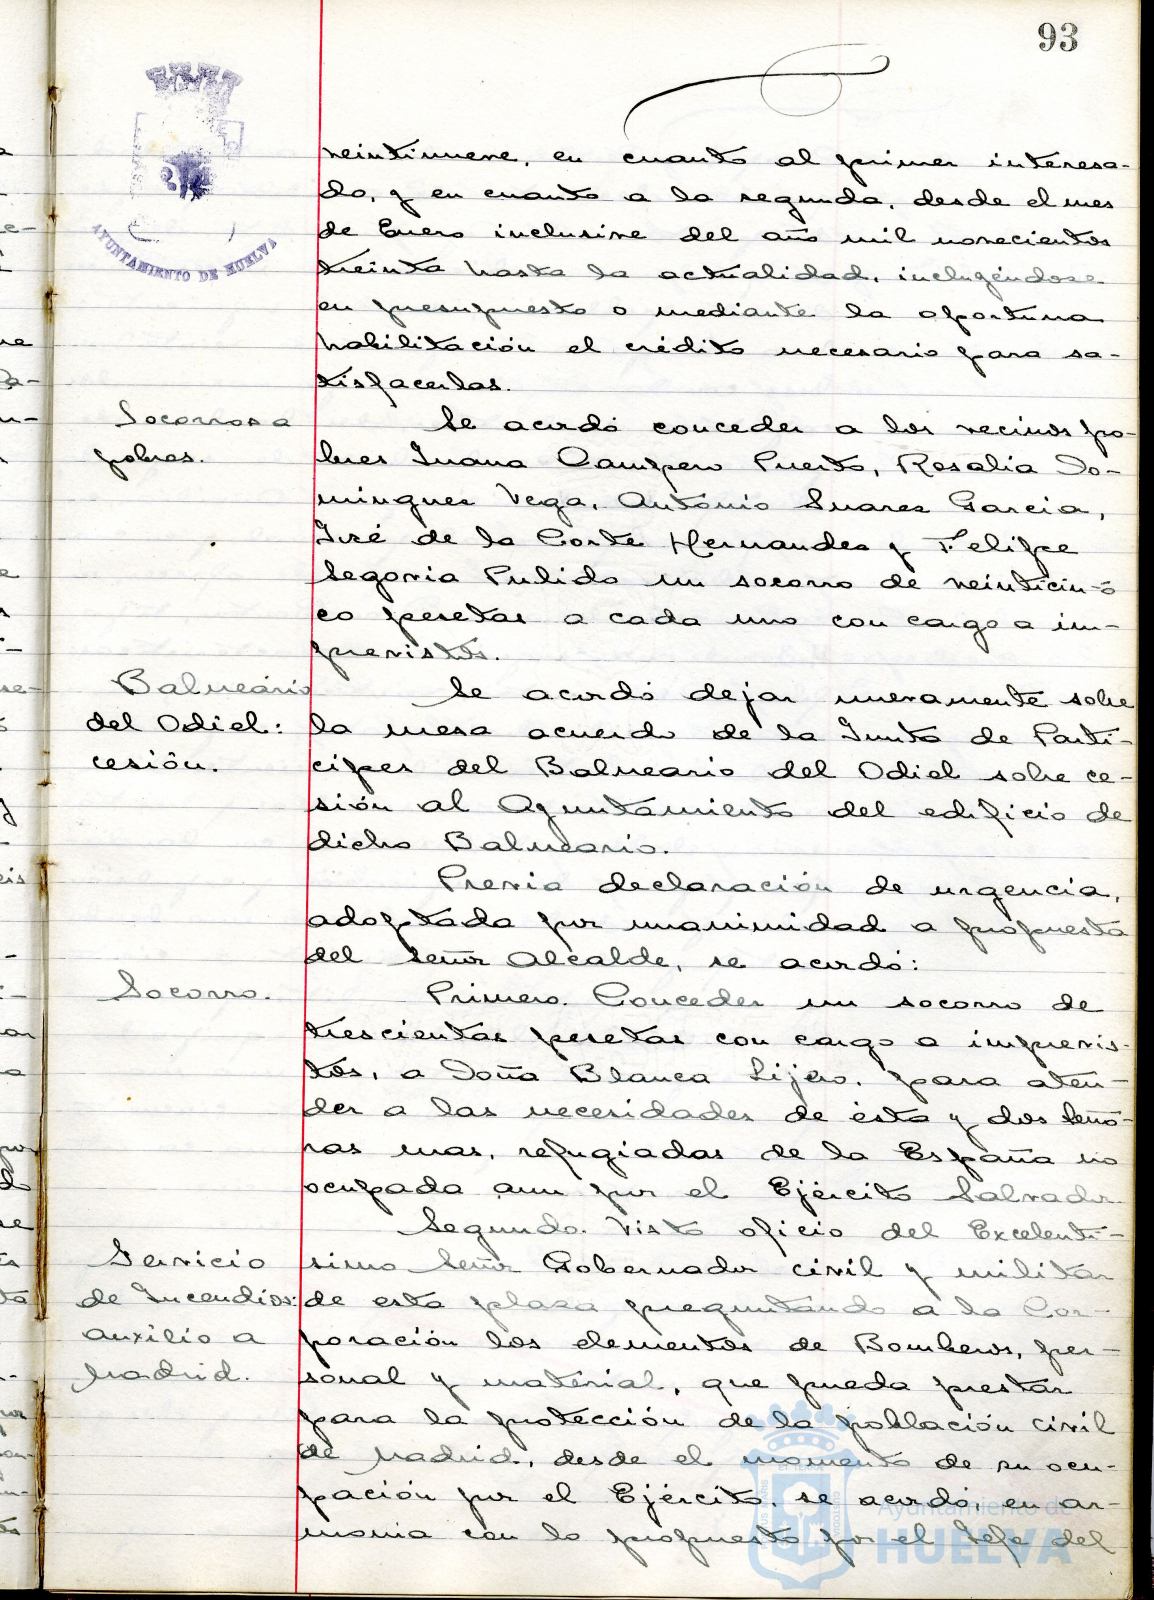 93
AYUNTAMIENTO DE HUELVA
veintinueve, en cuanto al primer interesa-
do, y en cuanto a la segunda, desde el mes
de Enero inclusive del año mil novecientos
treinta hasta la actualidad, incluyéndose
en presupuesto o mediante la oportuna
habilitación el crédito necesario para sa-
tisfacerlas.
Socorros a
pobres.
Se acordó conceder a los vecinos po-
bres Juana Campero Puerto, Rosalia Do-
minguez Vega, Antonio Suarez Garcia,
José de la Corte Hernandez y Felipe
Segovia Pulido un socorro de veinticin-
co pesetas a cada uno con cargo a im-
previstos.
Balneário
del Odiel:
cesión.
Se acordó dejar nuevamente sobre
la mesa acuerdo de la Junta de Parti-
cipes del Balneario del Odiel sobre ce-
sión al Ayuntamiento del edificio de
dicho Balneario.
Previa declaración de urgencia,
adoptada por unanimidad a propuesta
del Señor Alcalde, se acordó:
Socorro.
Primero. Conceder un socorro de
trescientas pesetas con cargo a imprevis-
tos, a Doña Blanca Lijero, para aten-
der a las necesidades de ésta y dos Seño-
ras mas, refugiadas de la España no
ocupada aun por el Ejército Salvador
Servicio
de Incendios:
auxilio a
Madrid.
Segundo. Visto oficio del Excelenti-
simo Señor Gobernador civil y militar
de esta plaza preguntando a la Cor-
poración los elementos de Bomberos, per-
sonal y material, que pueda prestar
para la protección de la población civil
de Madrid, desde el momento de su ocu-
pación por el Ejército, se acordó, en ar-
monia con lo propuesto por el Jefe del
Ayuntamiento de
HUELVA